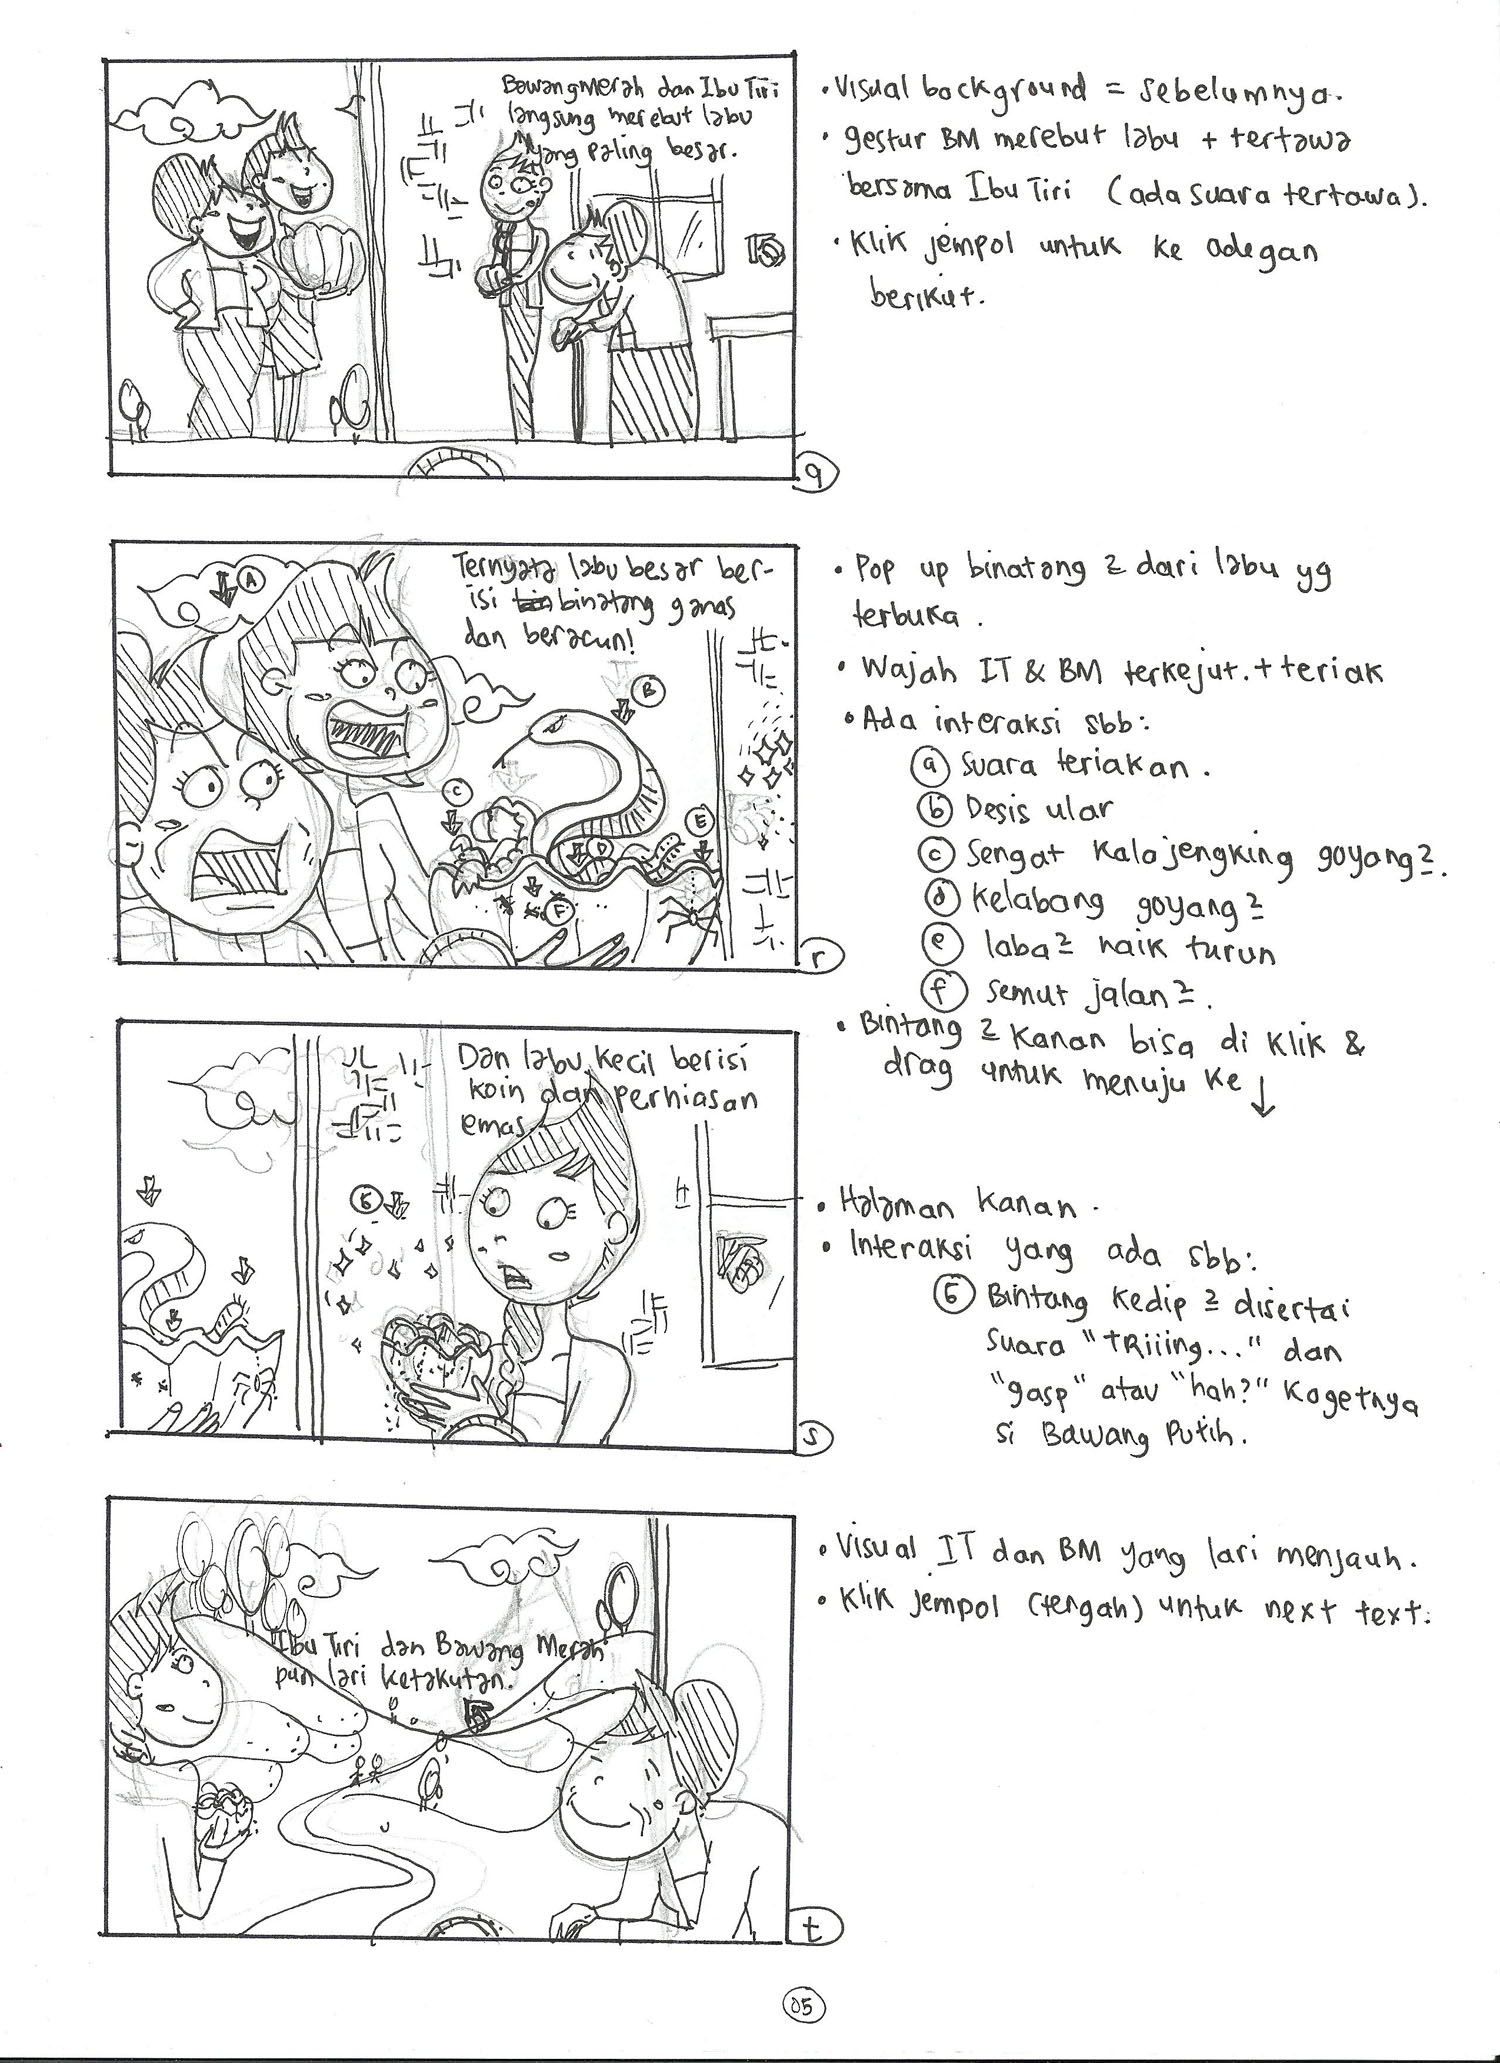 Bawang Merah dan Ibu Tiri
langsung merebut labu
yang paling besar.
q
• Visual background = sebelumnya.
• gestur BM merebut labu + tertawa
bersama Ibu Tiri (ada suara tertawa).
• Klik jempol untuk ke adegan
berikut.
Ternyata labu besar ber-
isi binatang ganas
dan beracun!
A
B
C
D
E
F
r
• Pop up binatang 2 dari labu yg
terbuka.
• Wajah IT & BM terkejut. + teriak
• Ada interaksi sbb:
a Suara teriakan.
b Desis ular
c Sengat Kalajengking goyang2.
d Kelabang goyang2
e laba2 naik turun
f semut jalan2.
• Bintang 2 Kanan bisa di Klik &
drag untuk menuju ke ↓
Dan labu kecil berisi
koin dan perhiasan
emas.
G
s
• Halaman Kanan.
• Interaksi yang ada sbb:
G Bintang Kedip 2 disertai
suara "tRiiing..." dan
"gasp" atau "hah?" Kagetnya
si Bawang Putih.
Ibu Tiri dan Bawang Merah
pun lari ketakutan.
t
• Visual IT dan BM yang lari menjauh.
• Klik jempol (tengah) untuk next text.
05